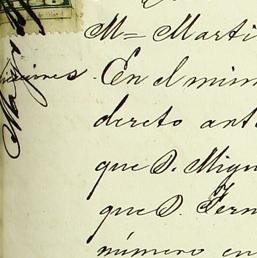 Mª Marti
En el mism
dereto ant
que D. Migu
que D. Fern
número en